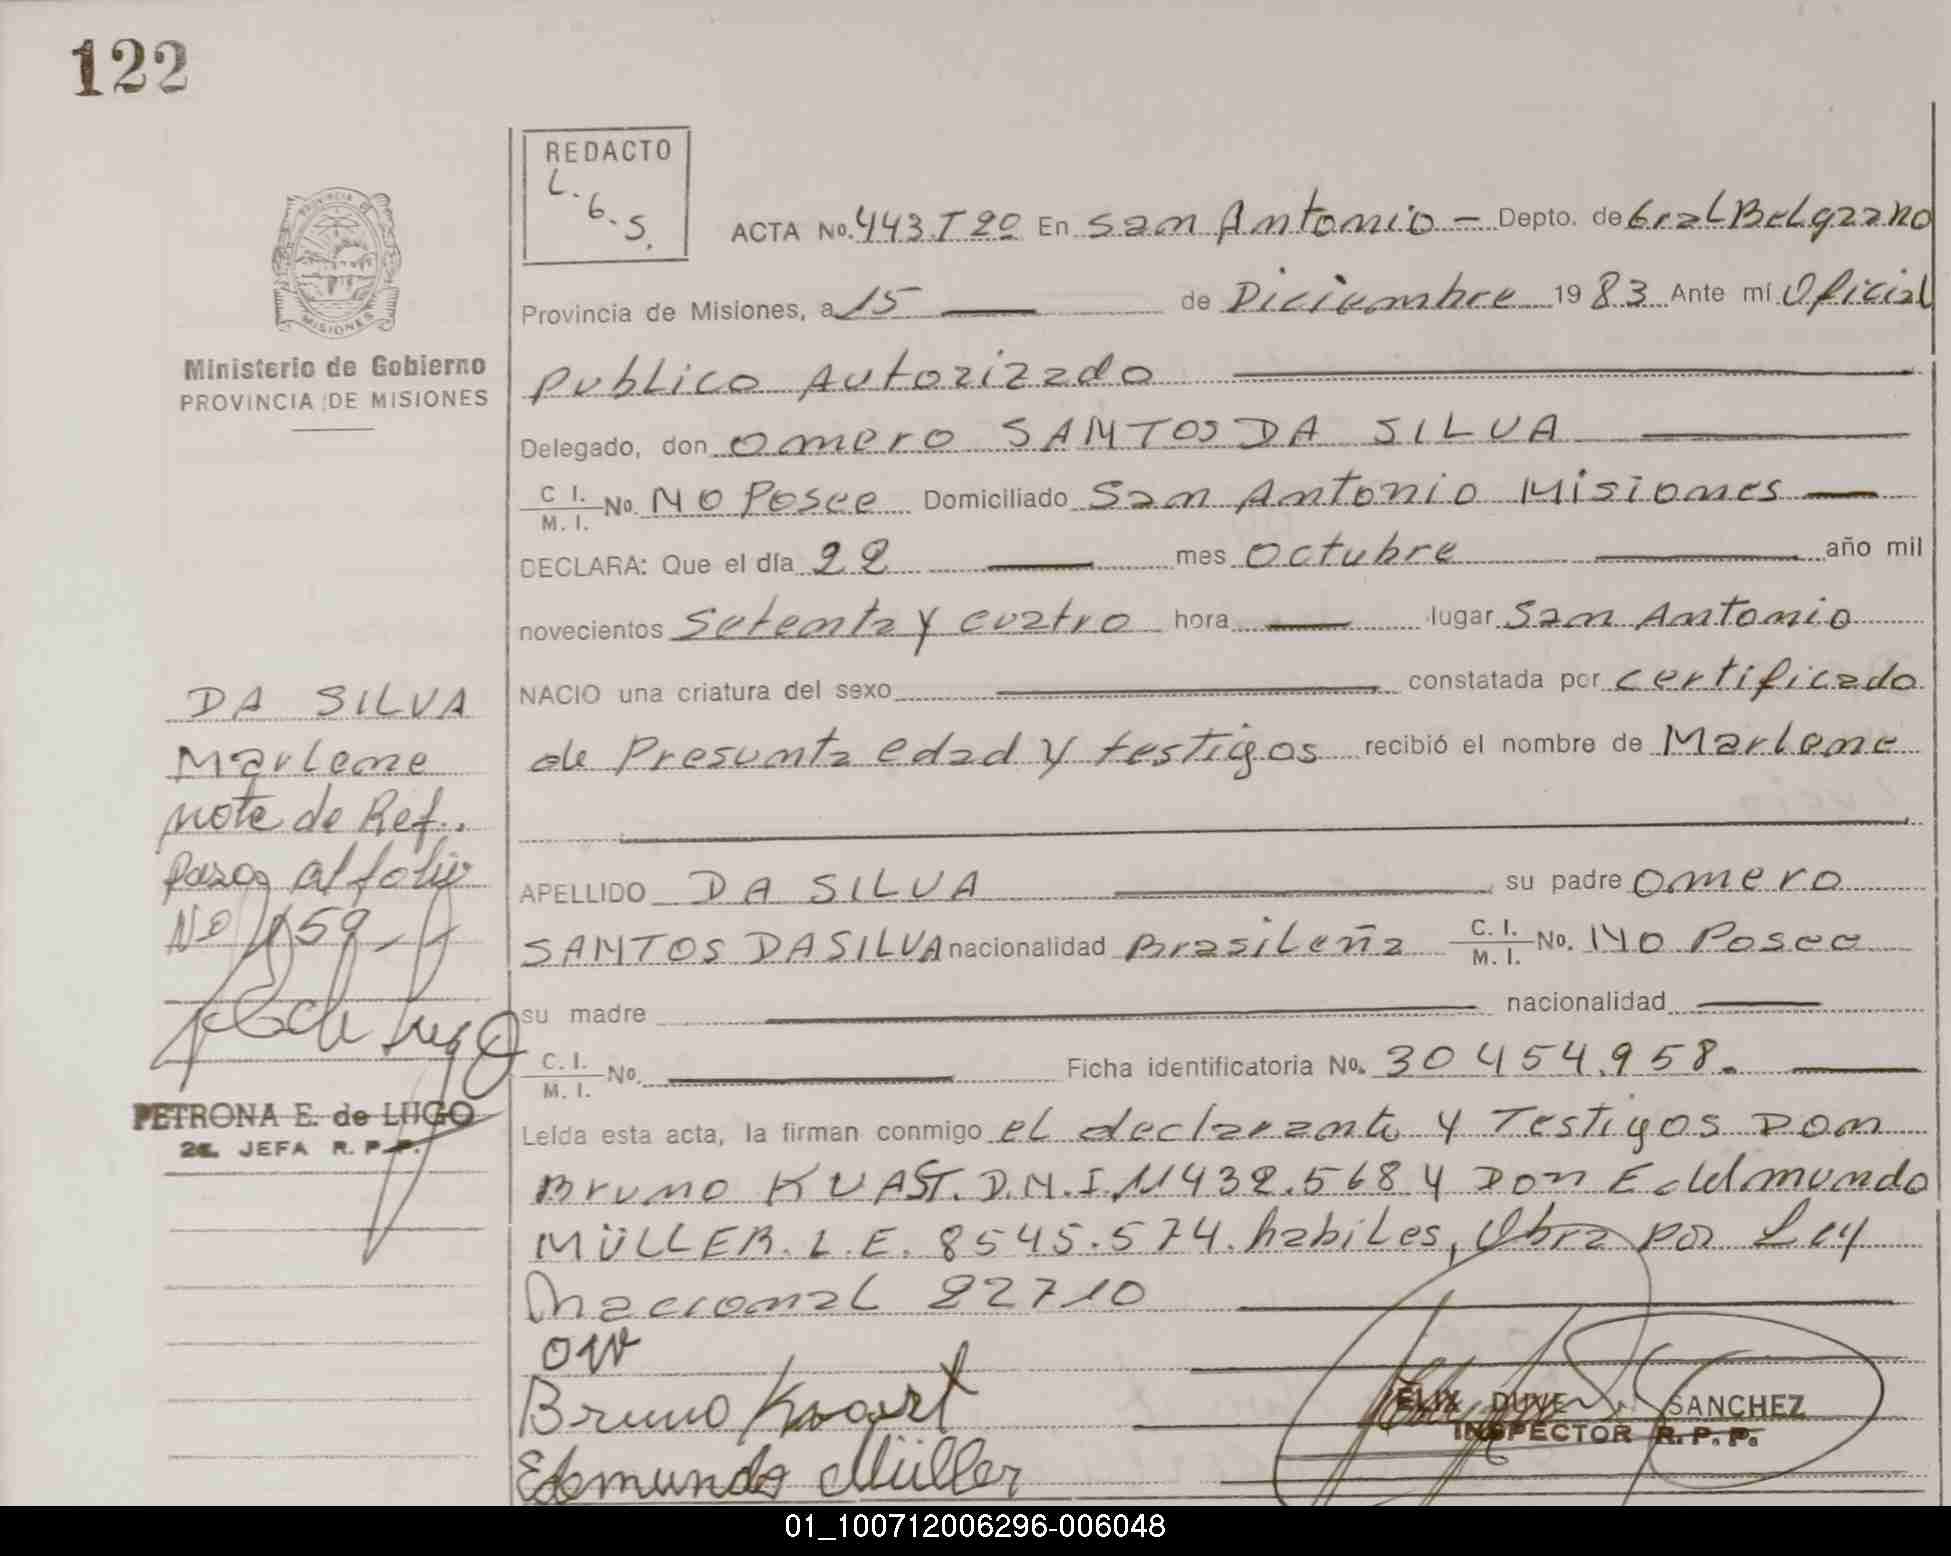 122
REDACTO
L. G. S.
ACTA No. 443.Tº 2º En San Antonio - Depto. de Gral Belgrano
Provincia de Misiones, a 15 de Diciembre 1983 Ante mí Oficial
Publico Autorizado
Delegado, don Omero SANTOS DA SILVA
C I. / M. I. No. No Posee Domiciliado San Antonio Misiones
DECLARA: Que el día 22 mes octubre año mil
novecientos Setenta y cuatro hora lugar San Antonio
NACIO una criatura del sexo constatada por certificado
de Presunta edad y testigos recibió el nombre de Marlene
APELLIDO DA SILVA su padre Omero
SANTOS DA SILVA nacionalidad Brasileña C. I. / M. I. No. No Posee
su madre nacionalidad
C. I. / M. I. No. Ficha identificatoria No. 30 454.958.
Leída esta acta, la firman conmigo el declarante y Testigos Don
Bruno KUAST. D.N.I. 11432.568 y Don Edelmundo
MÜLLER. L.E. 8545.574. habiles, Obra por Ley
Nacional 22710
Bruno
Edmundo Müller
FELIX DUVE SANCHEZ
INSPECTOR R. P. P.
PROVINCIA DE
MISIONES
Ministerio de Gobierno
PROVINCIA DE MISIONES
DA SILVA
Marlene
nota de Ref..
pasa al folio
Nº 159
PETRONA E. de LUGO
2a. JEFA R. P. P.
01_100712006296-006048